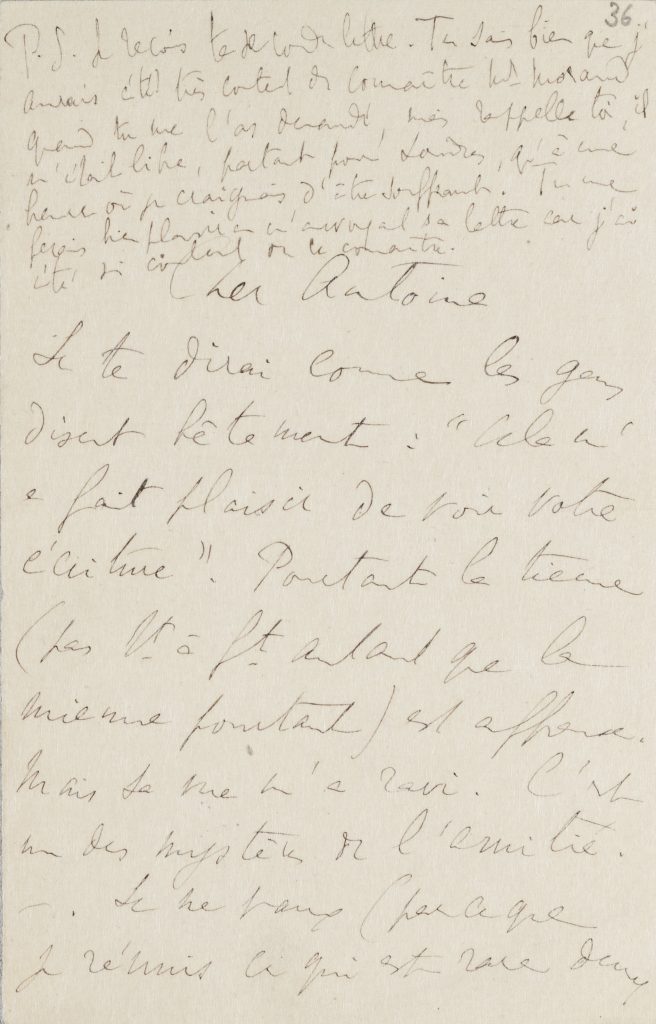 36
P.S. Je reçois ta seconde lettre. Tu sais bien que j'
aurais été très content de connaître Mr Morand
quand tu me l'as demandé, mais rappelle toi, il
n'était libre, partant pour Londres, qu'à une
heure où je craignais d'être souffrant. Tu me
ferais bien plaisir en m'envoyant sa lettre car j'ai
été si content de le connaître.
Cher Antoine
Je te dirai comme les gens
disent bêtement : "Cela m'
a fait plaisir de voir votre
écriture". Pourtant la tienne
(pas Vt à Gt autant que la
mienne pourtant) est affreuse.
Mais sa vue m'a ravi. C'est
un des mystères de l'amitié.
—. Je ne peux (parce que
je réunis ce qui est rare deux